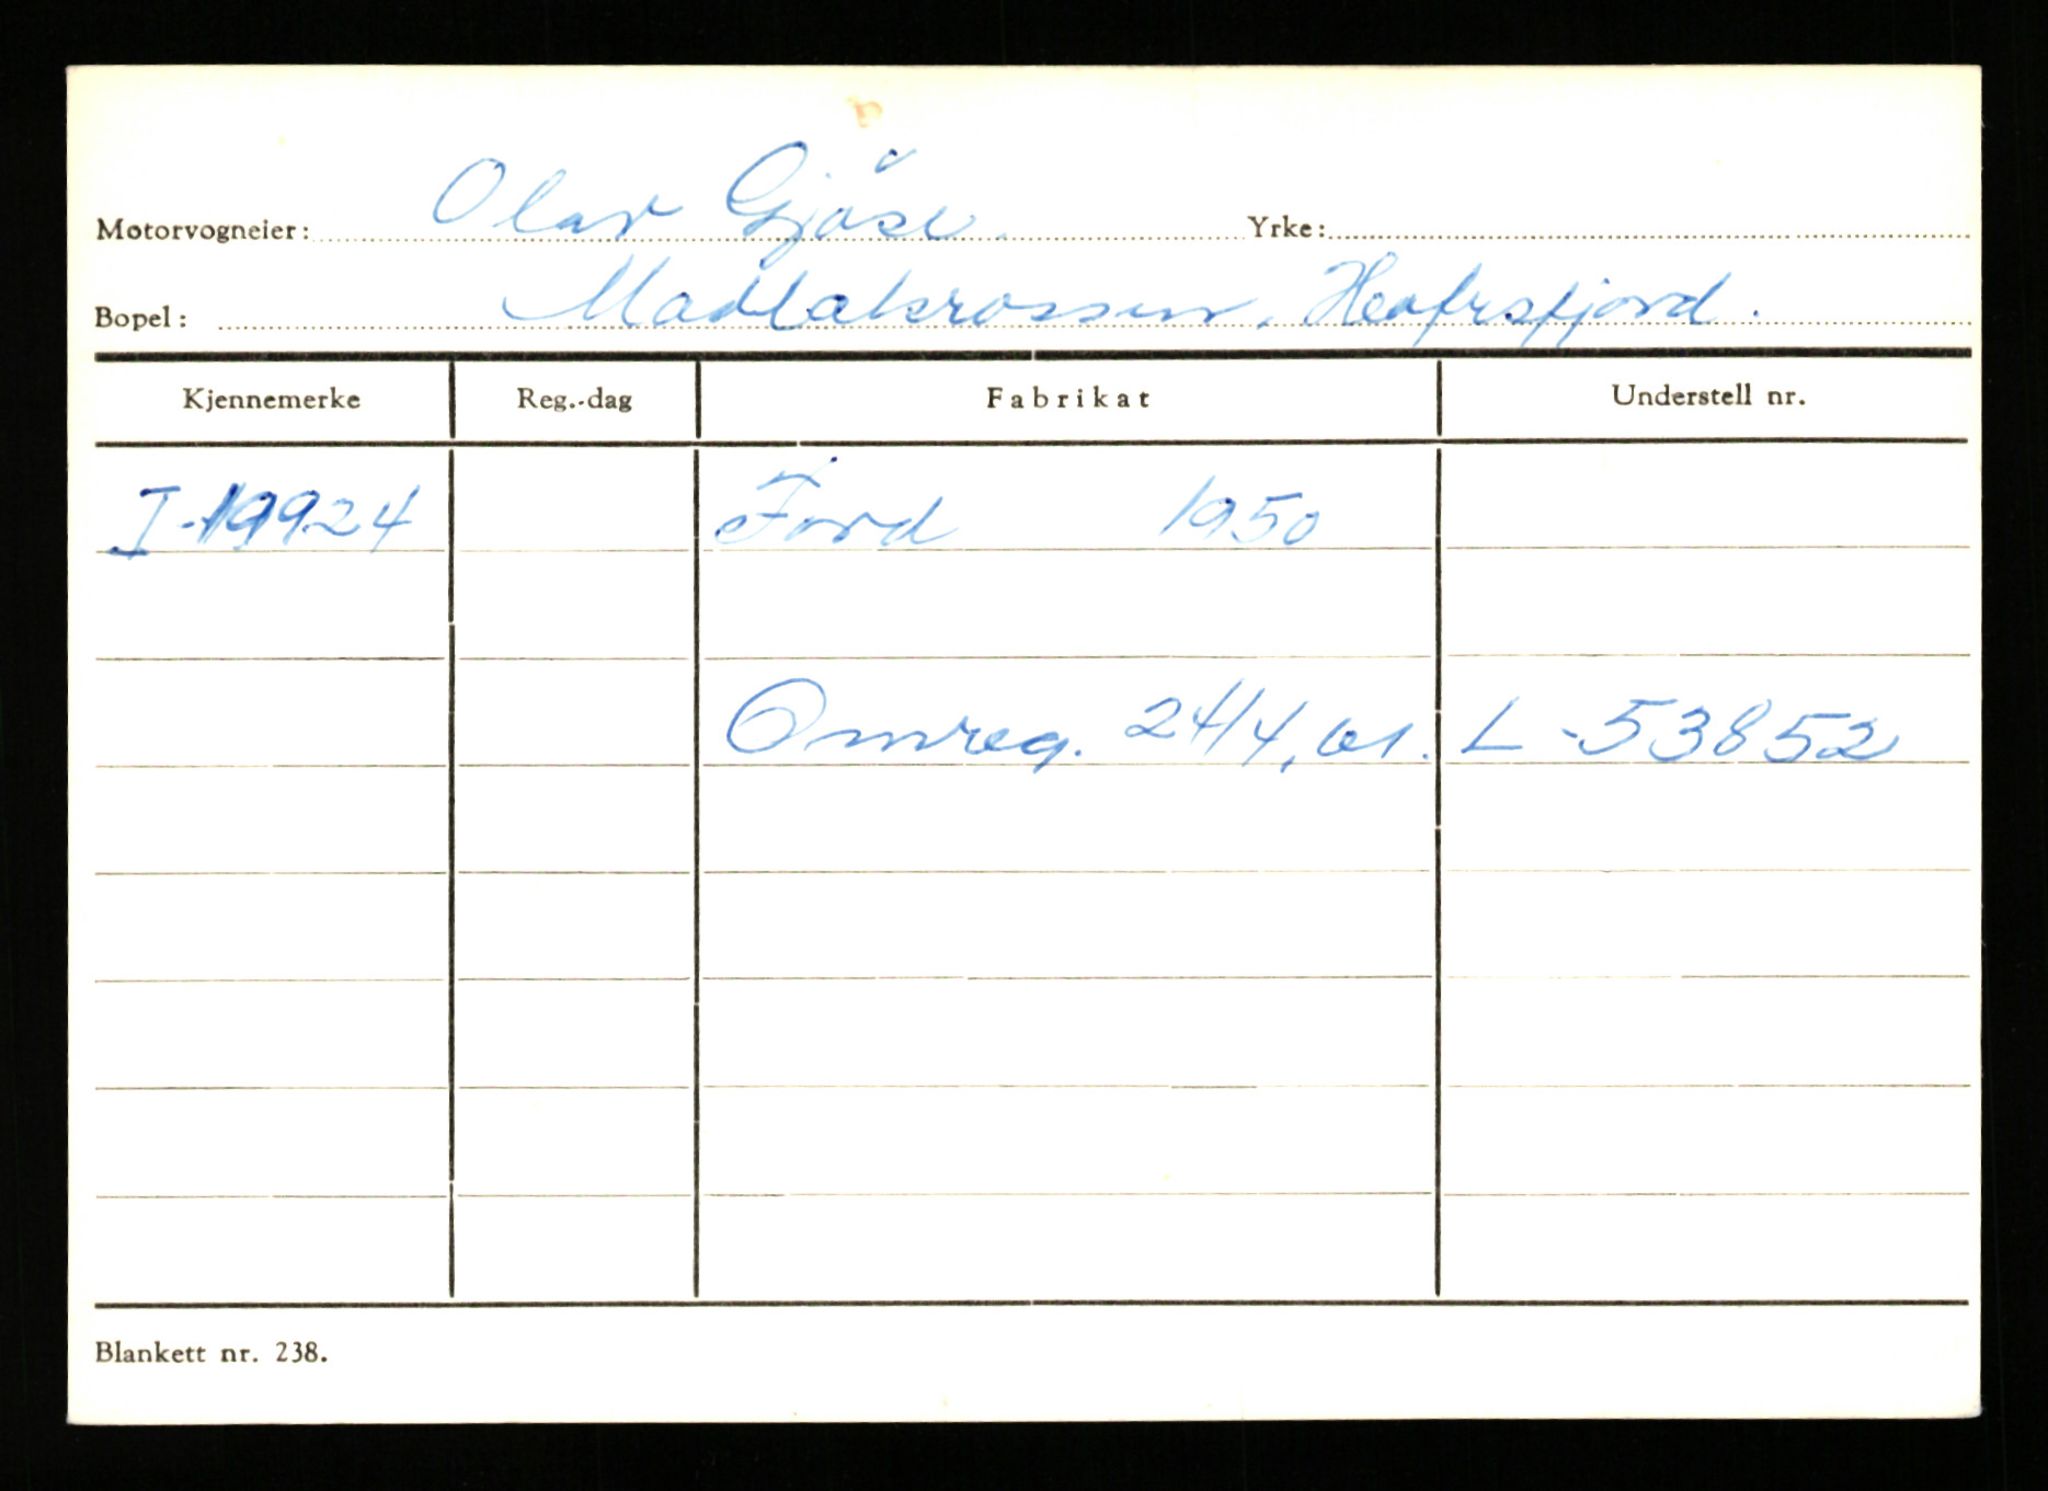 Motorvogneier: Olav Gjåse. Yrke:
Bopel: Madlakrossen, Heafrsfjord.
Kjennemerke Reg.-dag Fabrikat Understell nr.
I-19924 Ford 1950
Omreg. 24/4, 61. L-53852
Blankett nr. 238.